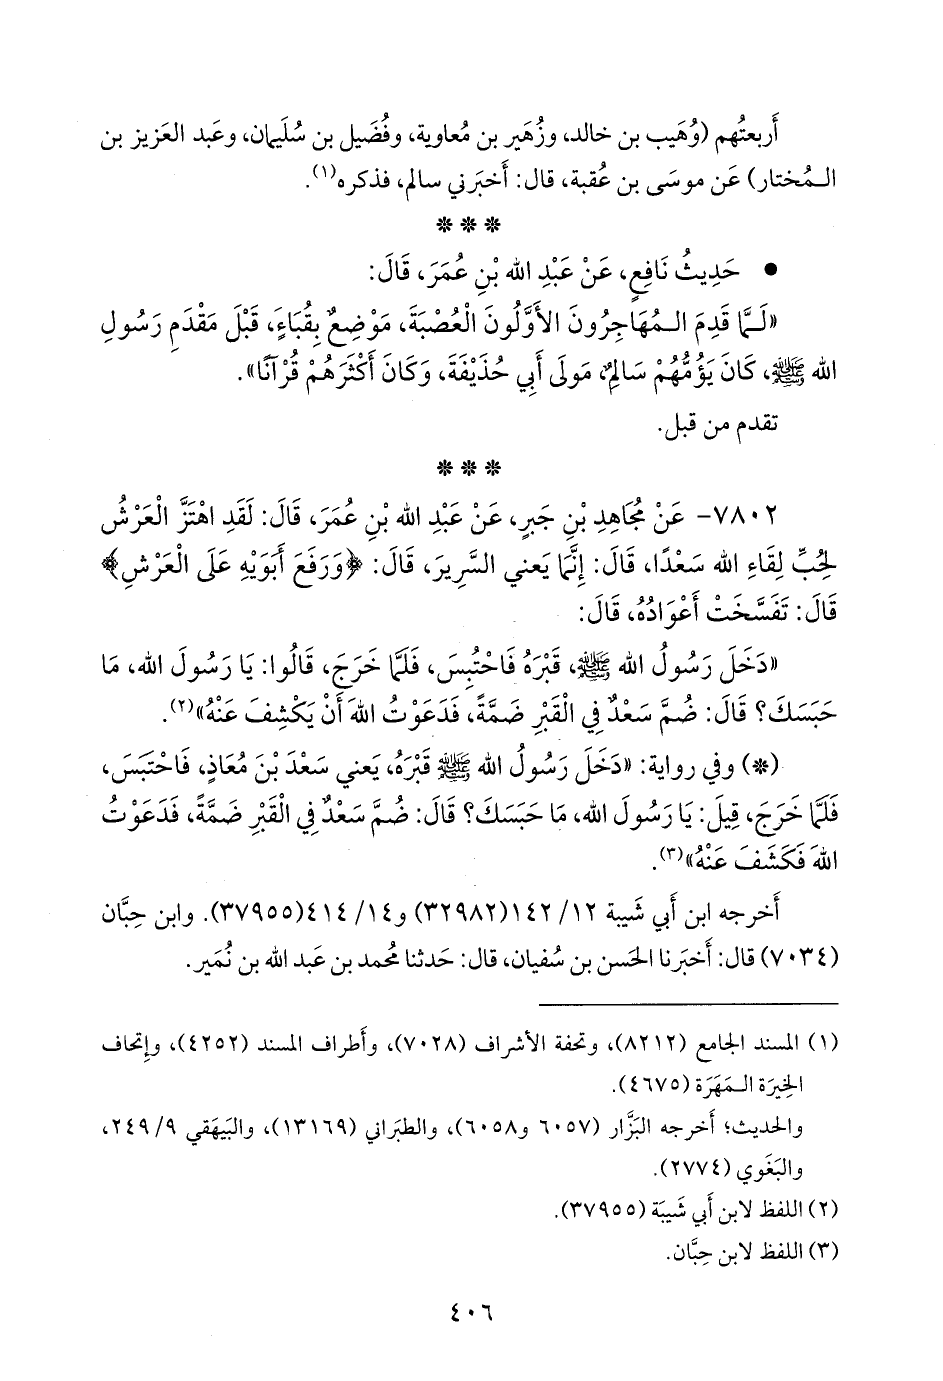 أَربعتُهم (وُهَيب بن خالد، وزُهَير بن مُعاوية، وفُضَيل بن سُلَيمان، وعَبد العَزيز بن
الـمُختار) عَن موسَى بن عُقبة، قال: أَخبَرني سالم، فذكره(١).
* * *
• حَدِيثُ نَافِعٍ، عَنْ عَبْدِ الله بْنِ عُمَرَ، قَالَ:
«لَـمَّا قَدِمَ الـمُهَاجِرُونَ الأَوَّلُونَ الْعُصْبَةَ، مَوْضِعٌ بِقُبَاءَ، قَبْلَ مَقْدَمِ رَسُولِ
الله ﷺ، كَانَ يَؤُمُّهُمْ سَالِمٌ، مَولَى أَبِي حُذَيْفَةَ، وَكَانَ أَكْثَرَهُمْ قُرْآنًا».
تقدم من قبل.
* * *
٧٨٠٢- عَنْ مُجَاهِدِ بْنِ جَبرٍ، عَنْ عَبْدِ الله بْنِ عُمَرَ، قَالَ: لَقَدِ اهْتَزَّ الْعَرْشُ
لِحُبِّ لِقَاءِ الله سَعْدًا، قَالَ: إِنَّمَا يَعني السَّرِيرَ، قَالَ: ﴿وَرَفَعَ أَبَوَيْهِ عَلَى الْعَرْشِ﴾
قَالَ: تَفَسَّخَتْ أَعْوَادُهُ، قَالَ:
«دَخَلَ رَسُولُ الله ﷺ، قَبْرَهُ فَاحْتُبِسَ، فَلَمَّا خَرَجَ، قَالُوا: يَا رَسُولَ الله، مَا
حَبَسَكَ؟ قَالَ: ضُمَّ سَعْدٌ فِي الْقَبْرِ ضَمَّةً، فَدَعَوْتُ اللهَ أَنْ يَكْشِفَ عَنْهُ»(٢).
(*) وفي رواية: «دَخَلَ رَسُولُ الله ﷺ قَبْرَهُ، يَعني سَعْدَ بْنَ مُعَاذٍ، فَاحْتَبَسَ،
فَلَمَّا خَرَجَ، قِيلَ: يَا رَسُولَ الله، مَا حَبَسَكَ؟ قَالَ: ضُمَّ سَعْدٌ فِي الْقَبْرِ ضَمَّةً، فَدَعَوْتُ
اللهَ فَكَشَفَ عَنْهُ»(٣).
أَخرجه ابن أَبي شَيبة ١٢/ ١٤٢(٣٢٩٨٢) و١٤/ ٤١٤(٣٧٩٥٥). وابن حِبَّان
(٧٠٣٤) قال: أَخبَرنا الحَسن بن سُفيان، قال: حَدثنا مُحمد بن عَبد الله بن نُمَير.
(١) المسند الجامع (٨٢١٢)، وتحفة الأشراف (٧٠٢٨)، وأَطراف المسند (٤٢٥٢)، وإتحاف
الخِيرَة الـمَهَرَة (٤٦٧٥).
والحديث؛ أَخرجه البَزَّار (٦٠٥٧ و٦٠٥٨)، والطبَراني (١٣١٦٩)، والبَيهَقي ٩/ ٢٤٩،
والبَغَوي (٢٧٧٤).
(٢) اللفظ لابن أَبي شَيبَة (٣٧٩٥٥).
(٣) اللفظ لابن حِبَّان.
٤٠٦